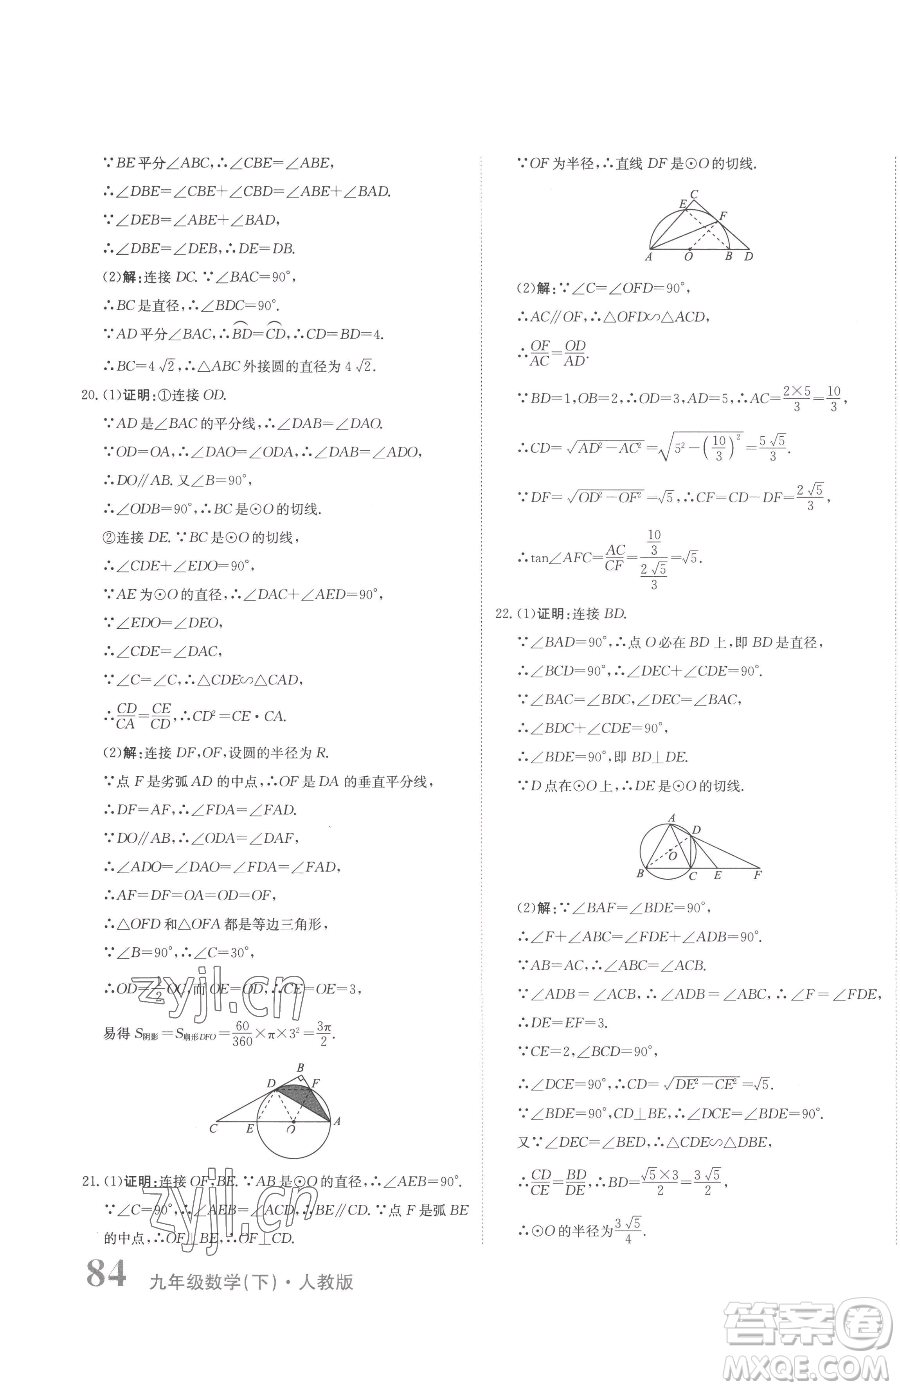 ∵BE平分∠ABC,∴∠CBE=∠ABE,
∴∠DBE=∠CBE+∠CBD=∠ABE+∠BAD.
∵∠DEB=∠ABE+∠BAD,
∴∠DBE=∠DEB,∴DE=DB.
(2)解:连接 DC.∵∠BAC=90°,
∴BC是直径,∴∠BDC=90°.
∵AD平分∠BAC,∴BD⌒=CD⌒,∴CD=BD=4.
∴BC=4√2,∴△ABC外接圆的直径为4√2.
20.(1)证明:①连接OD.
∵AD是∠BAC的平分线,∴∠DAB=∠DAO.
∵OD=OA,∴∠DAO=∠ODA,∴∠DAB=∠ODA,
∴DO∥AB.又∠B=90°,
∴∠ODB=90°,∴BC是⊙O的切线.
②连接DE.∵BC是⊙O的切线,
∴∠CDE+∠EDO=90°.
∵AE为⊙O的直径,∴∠DAC+∠AED=90°,
∵∠EDO=∠DEO,
∴∠CDE=∠DAC,
∵∠C=∠C,∴△CDE∽△CAD,
∴CD/CA=CE/CD,∴CD²=CE·CA.
(2)解:连接DF,OF,设圆的半径为R.
∵点F是劣弧AD的中点,∴OF是DA的垂直平分线,
∴DF=AF,∴∠FDA=∠FAD.
∵DO∥AB,∴∠ODA=∠DAF,
∴∠ADO=∠DAO=∠FDA=∠FAD,
∴AF=DF=OA=OD=OF,
∴△OFD和△OFA都是等边三角形,
∵∠B=90°,∴∠C=30°,
∴OD=1/2OC,而OE=OD,∴CE=OE=3,
易得S阴影=S扇形DFO=60/360×π×3²=3π/2.
B
D F
C E O A
21.(1)证明:连接OF,BE.∵AB是⊙O的直径,∴∠AEB=90°.
∵∠C=90°,∴∠AEB=∠ACD,∴BE∥CD.∵点F是弧BE
的中点,∴OF⊥BE,∴OF⊥CD.
84 九年级数学(下)·人教版
∵OF为半径,∴直线DF是⊙O的切线.
C
E F
A O B D
(2)解:∵∠C=∠OFD=90°,
∴AC∥OF,∴△OFD∽△ACD,
∴OF/AC=OD/AD.
∵BD=1,OB=2,∴OD=3,AD=5,∴AC=2×5/3=10/3,
∴CD=√(AD²-AC²)=√(5²-(10/3)²)=5√5/3.
∵DF=√(OD²-OF²)=√5,∴CF=CD-DF=2√5/3,
∴tan∠AFC=AC/CF=(10/3)/(2√5/3)=√5.
22.(1)证明:连接BD.
∵∠BAD=90°,∴点O必在BD上,即BD是直径,
∴∠BCD=90°,∴∠DEC+∠CDE=90°.
∵∠BAC=∠BDC,∠DEC=∠BAC,
∴∠BDC+∠CDE=90°,
∴∠BDE=90°,即BD⊥DE.
∵D点在⊙O上,∴DE是⊙O的切线.
A
D
O
B C E F
(2)解:∵∠BAF=∠BDE=90°,
∴∠F+∠ABC=∠FDE+∠ADB=90°.
∵AB=AC,∴∠ABC=∠ACB.
∵∠ADB=∠ACB,∴∠ADB=∠ABC,∴∠F=∠FDE,
∴DE=EF=3.
∵CE=2,∠BCD=90°,
∴∠DCE=90°,∴CD=√(DE²-CE²)=√5.
∵∠BDE=90°,CD⊥BE,∴∠DCE=∠BDE=90°.
又∵∠DEC=∠BED,∴△CDE∽△DBE,
∴CD/CE=BD/DE,∴BD=√5×3/2=3√5/2,
∴⊙O的半径为3√5/4.
zyjl.cn
zyjl.cn
答案圈
MXQE.COM